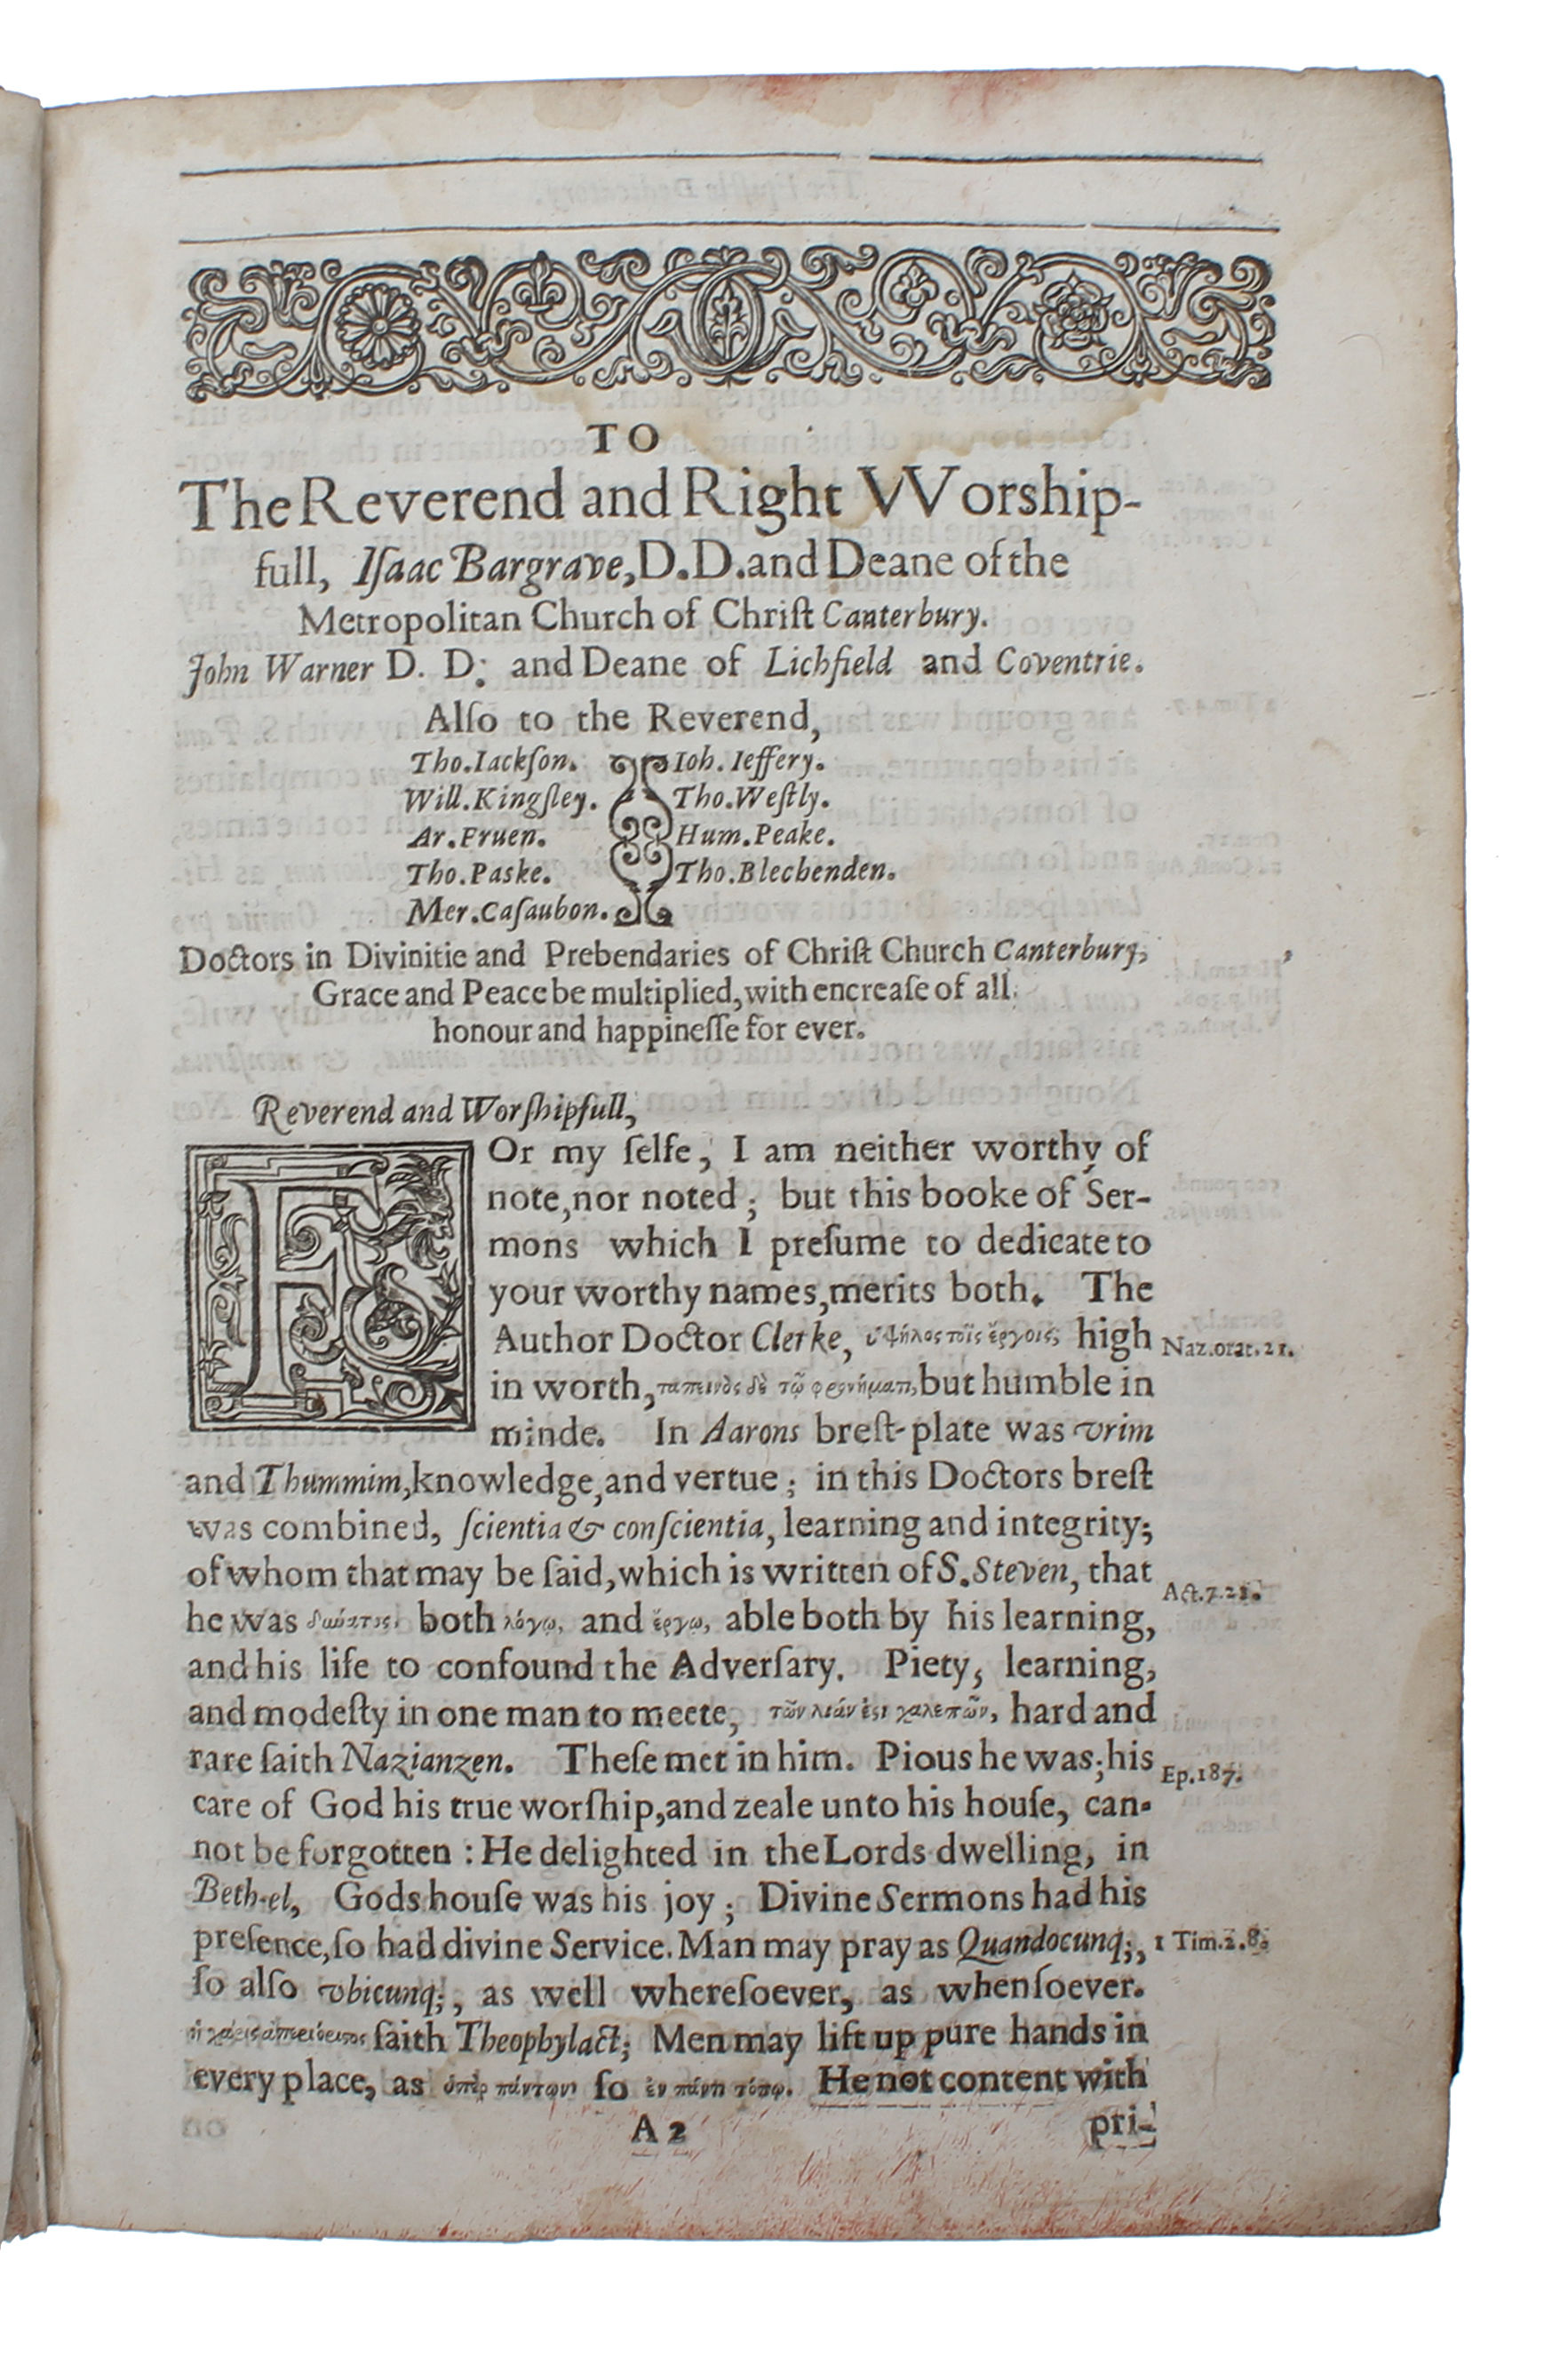 TO
The Reverend and Right VVorship-
full, Iſaac Bargrave, D.D. and Deane of the
Metropolitan Church of Chriſt Canterbury.
John Warner D. D. and Deane of Lichfield and Coventrie.
Alſo to the Reverend,
Tho. Iackſon. Ioh. Ieffery.
Will. Kingſley. Tho. Weſtly.
Ar. Fruen. Hum. Peake.
Tho. Paske. Tho. Blechenden.
Mer. Caſaubon.
Doctors in Divinitie and Prebendaries of Chriſt Church Canterbury,
Grace and Peace be multiplied, with encreaſe of all
honour and happineſſe for ever.
Reverend and Worſhipfull,
FOr my ſelfe, I am neither worthy of
note, nor noted; but this booke of Ser-
mons which I preſume to dedicate to
your worthy names, merits both. The
Author Doctor Clerke, ὑψηλὸς τοῖς ἔργοις, high
Naz. orat. 21.
in worth, ταπεινὸς δὲ τῷ φρονήματι, but humble in
minde. In Aarons breſt-plate was vrim
and Thummim, knowledge, and vertue; in this Doctors breſt
was combined, ſcientia & conſcientia, learning and integrity;
of whom that may be ſaid, which is written of S. Steven, that
Act. 7. 21.
he was both λόγῳ, and ἔργῳ, able both by his learning,
and his life to confound the Adverſary. Piety, learning,
and modeſty in one man to meete, τῶν λιάν ἐςι χαλεπῶν, hard and
rare ſaith Nazianzen. Theſe met in him. Pious he was; his
Ep. 187.
care of God his true worſhip, and zeale unto his houſe, can-
not be forgotten: He delighted in the Lords dwelling, in
Beth-el, Gods houſe was his joy; Divine Sermons had his
preſence, ſo had divine Service. Man may pray as Quandocunq;,
1 Tim. 2. 8.
ſo alſo vbicunq;, as well whereſoever, as whenſoever.
ſaith Theophylact; Men may lift up pure hands in
every place, as ὑπὲρ πάντων ſo ἐν παντὶ τόπῳ. He not content with
A 2 pri-